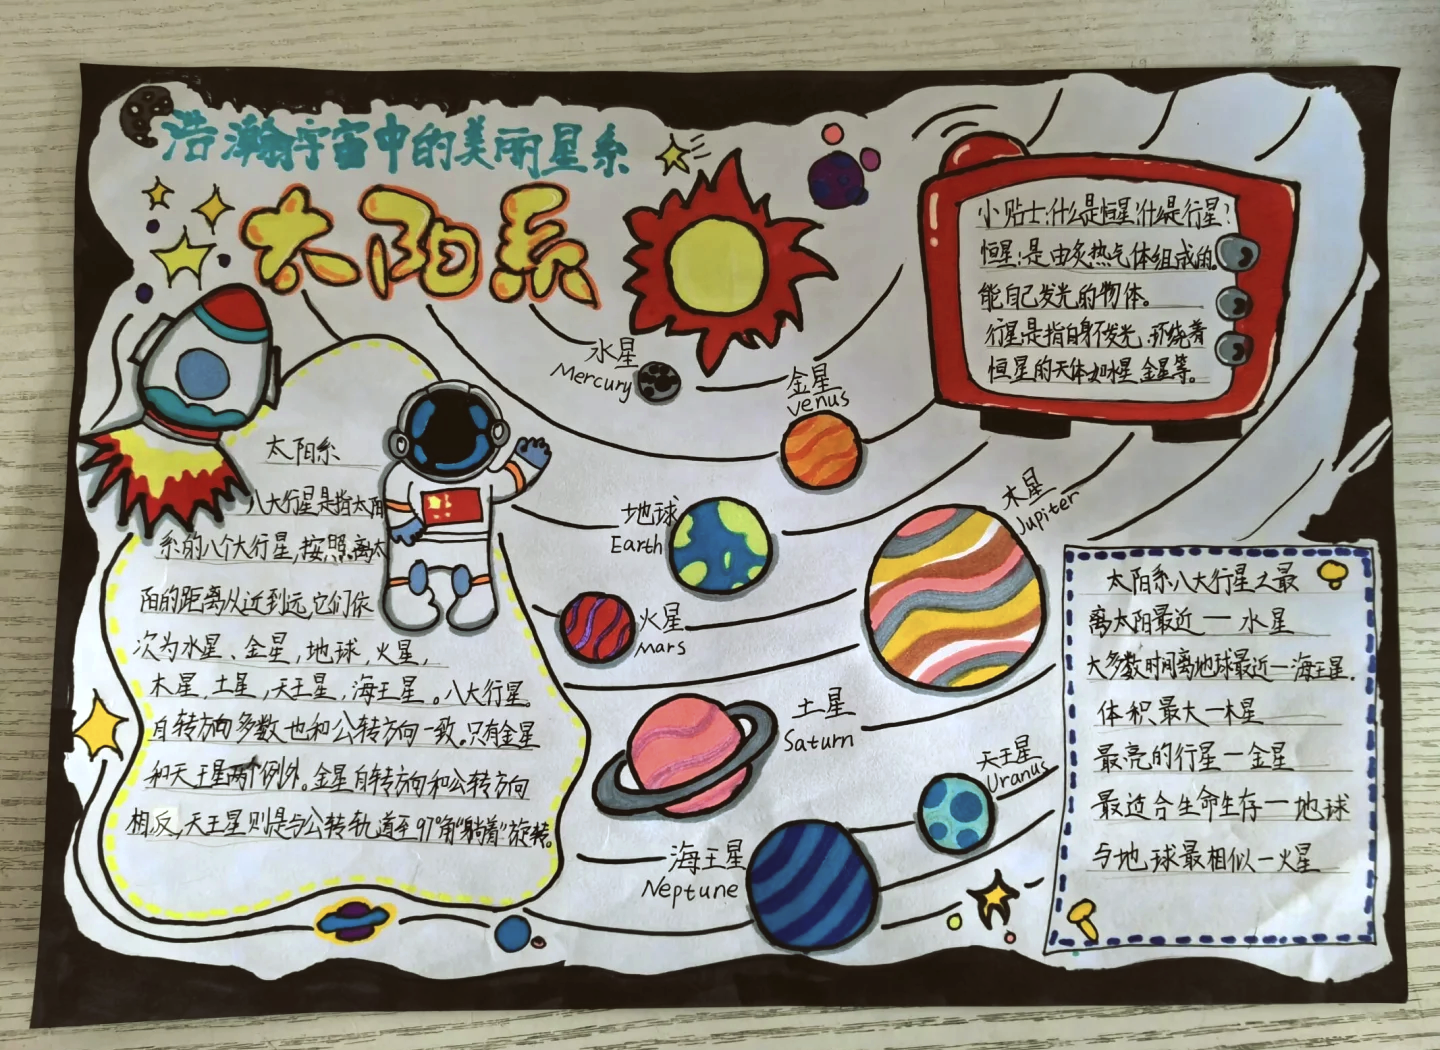 浩瀚宇宙中的美丽星系
太阳系
小贴士:什么是恒星?什么是行星?
恒星:是由炙热气体组成的。
能自己发光的物体。
行星:是指自身不发光,环绕着
恒星的天体如水星、金星等。
水星
Mercury
金星
venus
地球
Earth
火星
Mars
木星
Jupiter
土星
Saturn
天王星
Uranus
海王星
Neptune
太阳系
八大行星是指太阳
系的八个大行星,按照离太
阳的距离从近到远,它们依
次为水星、金星,地球,火星,
木星,土星,天王星,海王星。八大行星。
自转方向多数也和公转方向一致。只有金星
和天王星两个例外。金星自转方向和公转方向
相反,天王星则是与公转轨道呈97°角"躺着"旋转。
太阳系八大行星之最
离太阳最近一水星
大多数时间离地球最近一海王星.
体积最大一木星
最亮的行星一金星
最适合生命生存一地球
与地球最相似一火星